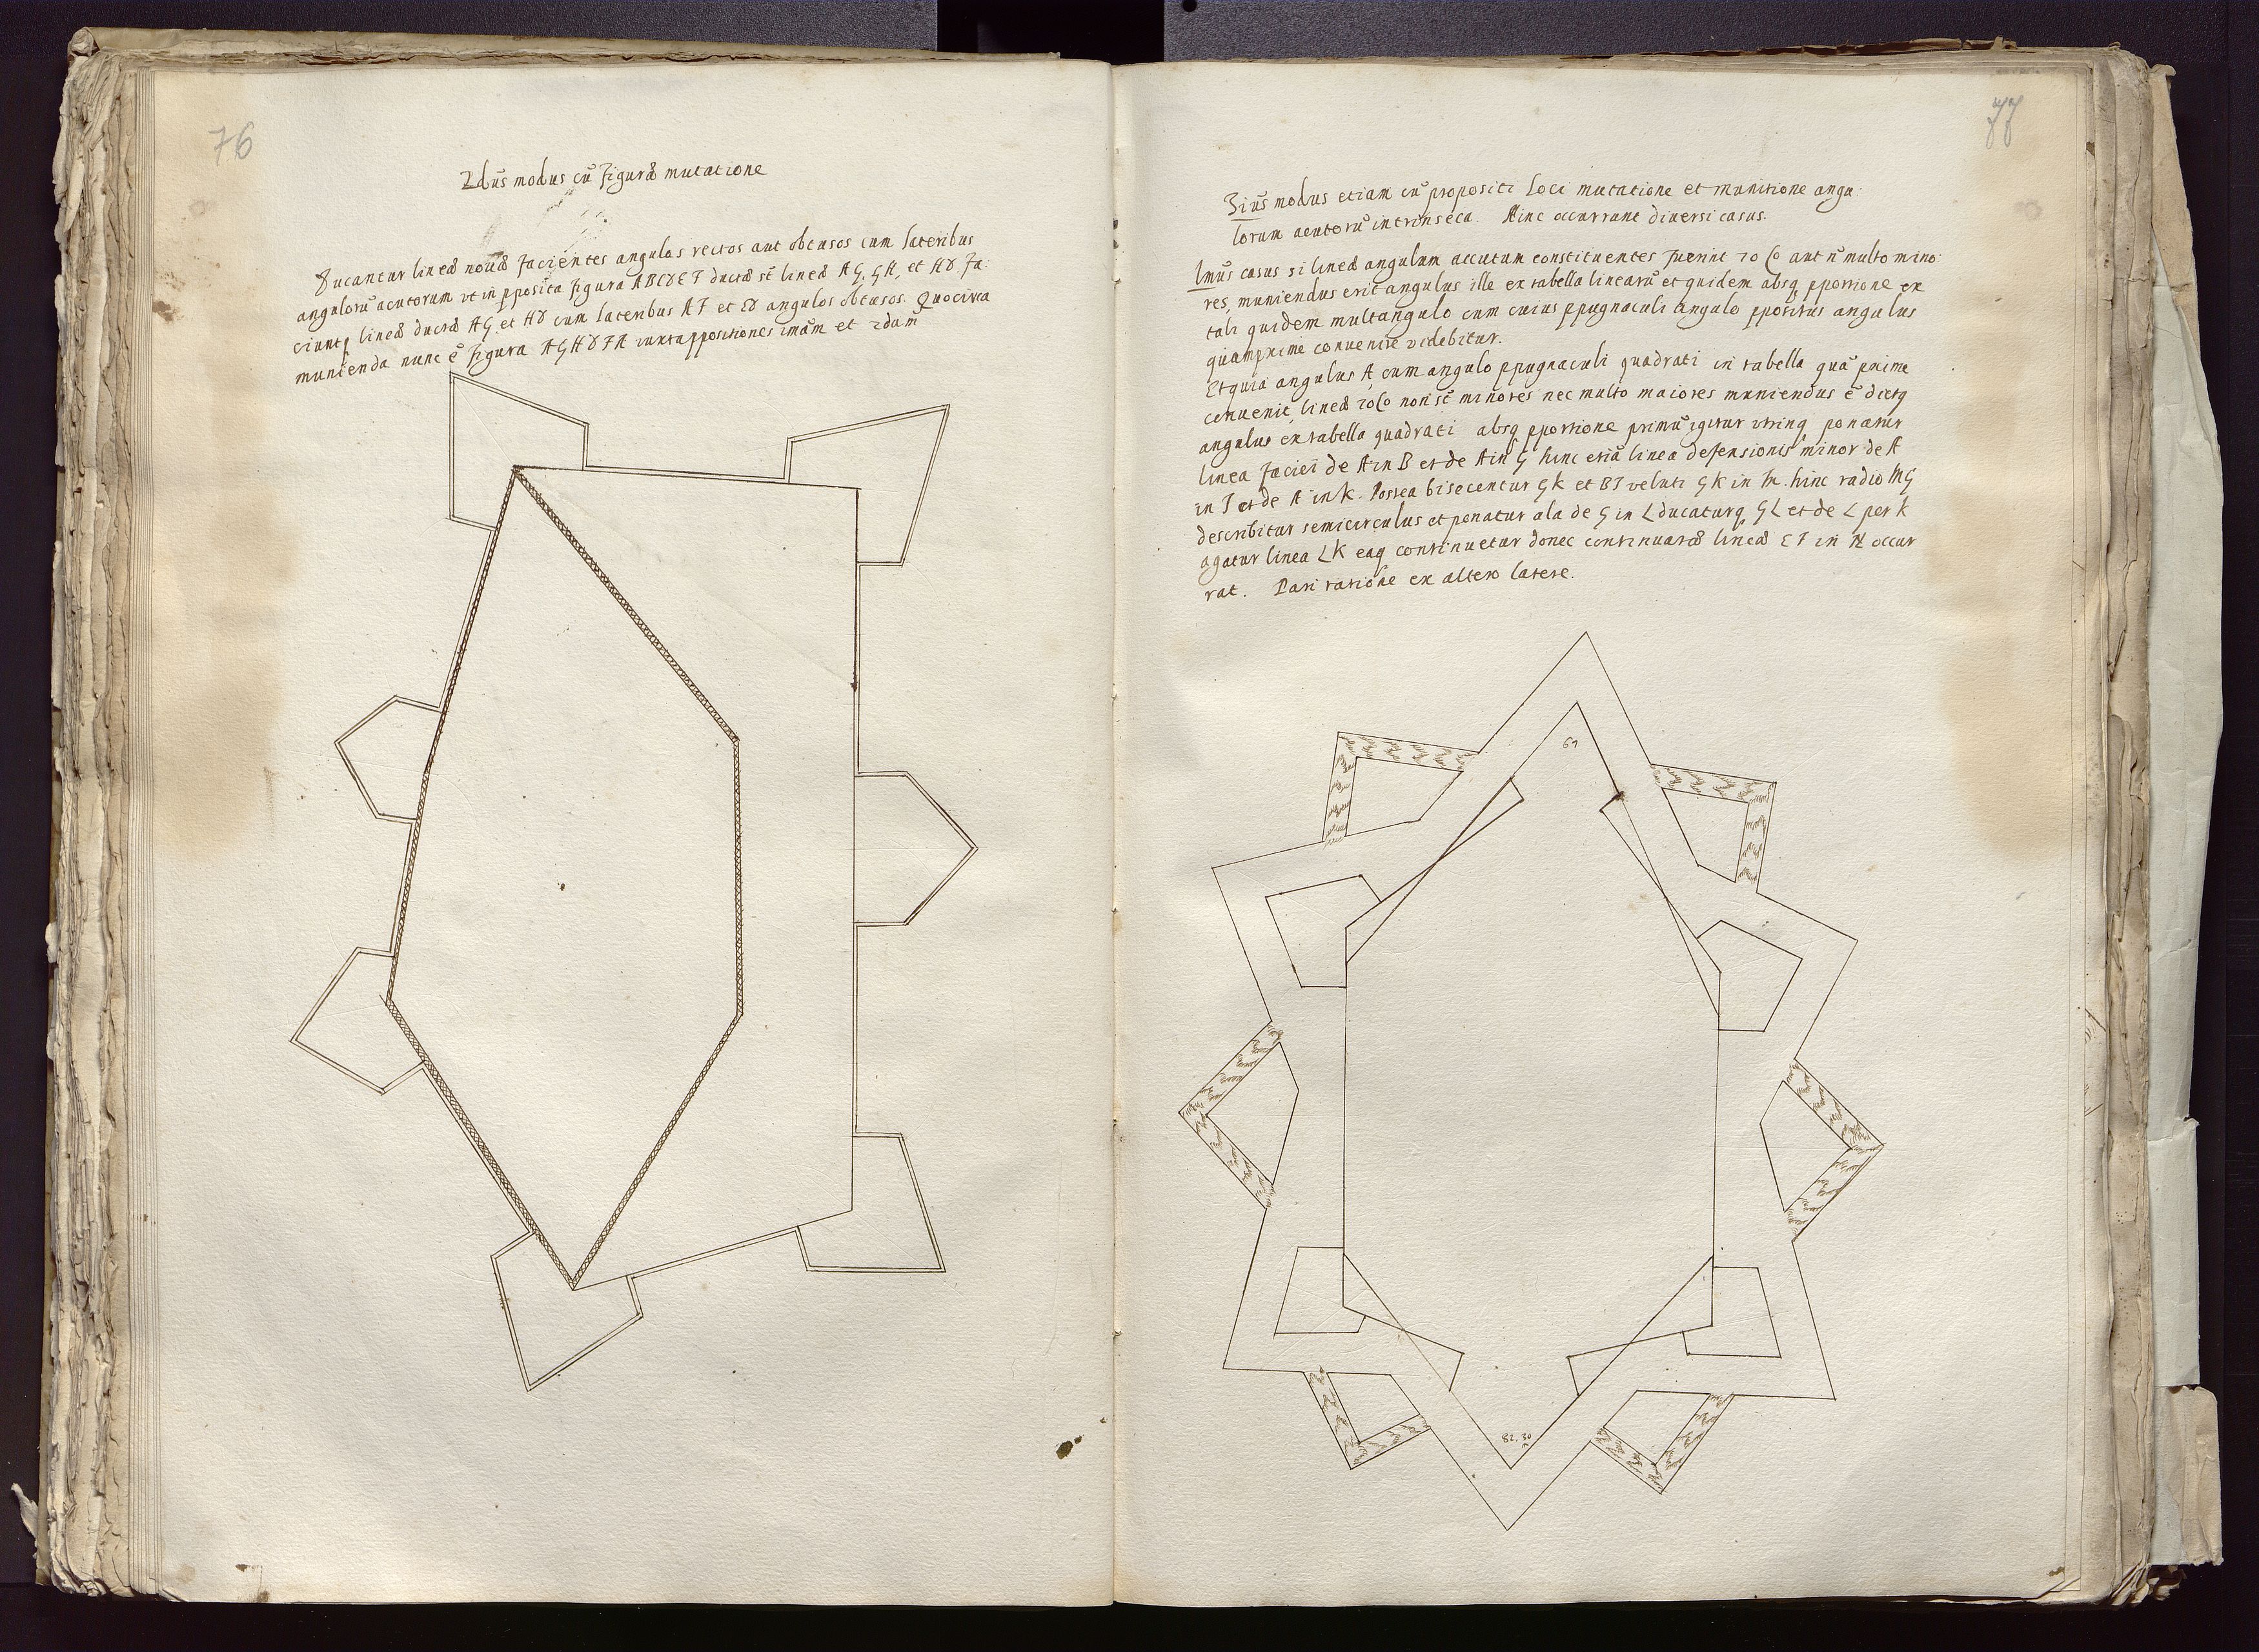 76
2dus modus cū figuræ mutatione
Ducantur lineæ novæ facientes angulos rectos aut obtusos cum lateribus
angulorū acutorum ut in pposita figura ABCDEF ductæ st̄ lineæ AG, GH, et HD. Fa:
ciuntq lineæ ductæ AG et HD cum lateribus AF et ED angulos obtusos. Quocirca
munienda nunc ē figura AGHDFA iuxta ppositiones imām et 2dam
77
3ius modus etiam cū propositi loci mutatione et munitione angu:
lorum acutorū intrinseca. Hinc occurrunt diversi casus.
1mus casus si lineæ angulum accutum constituentes fuerint 70 ⁰ aut ñ multo mino:
res, muniendus erit angulus ille ex tabella linearū et quidem absq pportione ex
tali quidem multangulo cum cuius ppugnaculi angulo ppositus angulus
quamproxime convenire videbitur.
Et quia angulus A cum angulo ppugnaculi quadrati in tabella quā proxime
convenit, lineæ 70⁰ non st̄ minores nec multo maiores muniendus ē dictq
angulus ex tabella quadrati absq pportione primū igitur utrinq ponatur
linea faciei de A in B et de A in G hinc etiā linea defensionis minor de A
in F et de A in K. Postea bisecentur GK et BF veluti GK in M. hinc radio MG
describitur semicirculus et ponatur ala de G in L ducaturq GL et de L per K
agatur linea LK eaq continuetur donec continuatæ lineæ EF in N occur
rat. Pari ratione ex altero latere.
61
82.30